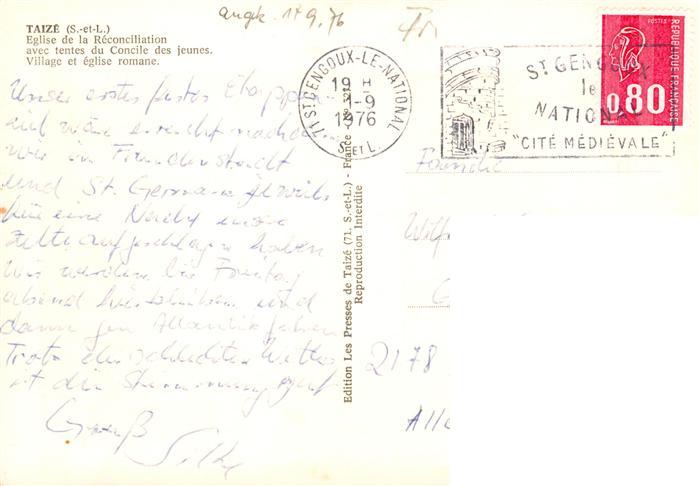 TAIZÉ (S.-et-L.)
Eglise de la Réconciliation
avec tentes du Concile des jeunes.
Village et église romane.
angek. 17.9.76
71 ST GENGOUX-LE-NATIONAL
19 H
-9
1976
S. ET L.
ST GENGOUX
le
NATIONAL
"CITÉ MÉDIÉVALE"
POSTES
REPUBLIQUE FRANÇAISE
0,80
Unser erstes festes
wäre erreicht nachdem
wir in Freudenstadt
und St. Germain jeweils
für eine Nacht unsere
Zelte aufgeschlagen haben
Wir werden bis Freitag
abend hierbleiben und
dann gen Atlantik fahren
Trotz des schlechten Wetters
ist die Stimmung gut
Gruß
Silke
Edition Les Presses de Taizé (71. S.-et-L.) - France
Reproduction Interdite
Familie
2178